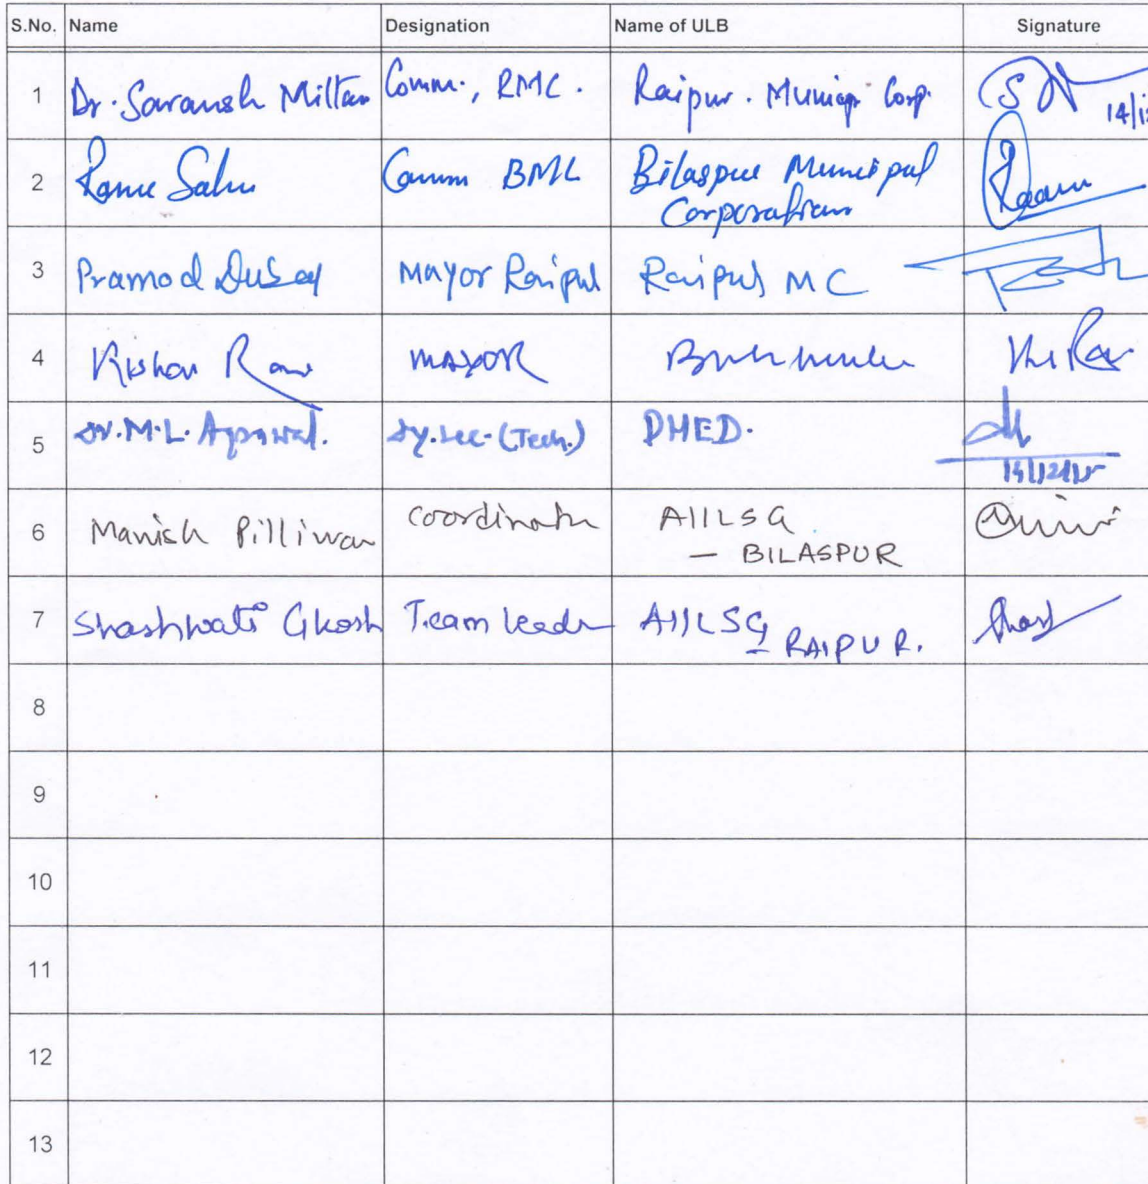 S.No. Name Designation Name of ULB Signature
1 Dr. Saransh Mittar Comm., RMC. Raipur. Municp Corp. 14/12
2 Ranu Sahu Comm BMC Bilaspur Municipal
Corporation
3 Pramod Dubey Mayor Raipur Raipur MC
4 Kishor Rai MAYOR
5 Dr. M.L. Agrawal. Dy. Sec. (Tech.) PHED.
14/12/15
6 Manish Pilliwar coordinator AIILSG
- BILASPUR
7 Shashwati Ghosh Team leader AIILSG
- RAIPUR.
8
9
10
11
12
13